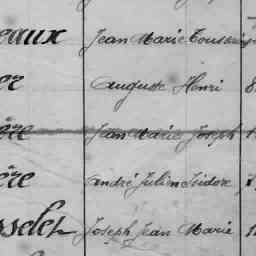 eaux Jean Marie Toussaint
er Auguste Henri 8
ère Jean Marie Joseph 1
ère André Julien Isidore
sselet Joseph Jean Marie 1